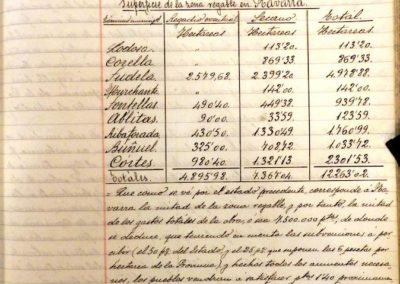 Superficie de la zona regable en Navarra.
Términos municip. Regadío eventual Secano Total
Hectáreas Hectáreas Hectáreas
Lodosa " 113'20. 113'20.
Corella " 869'33. 869'33.
Tudela 2.579,68. 2.399'20 4.978'88.
Murchante " 142'00. 142'00.
Fontellas 490'40. 449'38. 939'78.
Ablitas 90'00. 33'59. 123'59.
Ribaforada 430'50. 1.330'49. 1.760'99.
Buñuel 325'00. 708'72. 1.033'72.
Cortes 980'40. 1.321'13 2.301'53.
Totales. 4.895'98. 7.367'04. 12.263'02.
= Que como se vé por el estado precedente corresponde á Na-
varra la mitad de la zona regable, y por tanto, la mitad
de los gastos totales de la obra, ó sea 4.500.000 ptas, de donde
se deduce, que teniendo en cuenta las subvenciones á per-
cibir (el 50 p% del Estado, y el 25 p% que suponen las 6 pesetas por
hectárea de la Provincia) y hechos todos los aumentos necesa-
rios, los pueblos vendrán á satisfacer ptas 140 proximamen